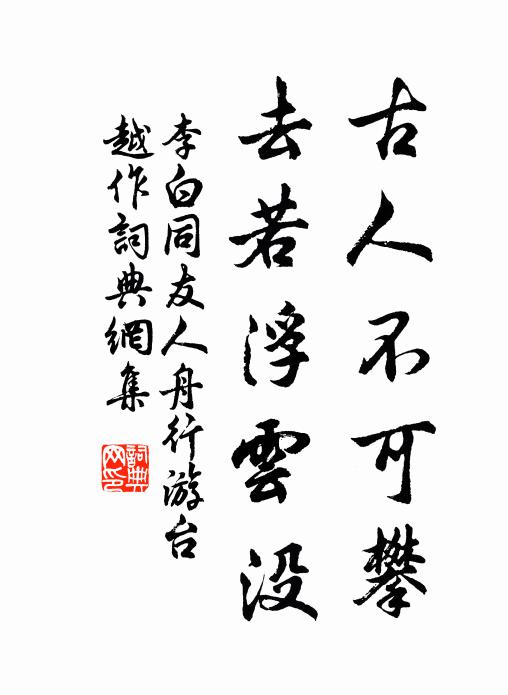 古人不可攀
去若浮雲没
李白同友人舟行游台
越作詞典網集
詞典
网印